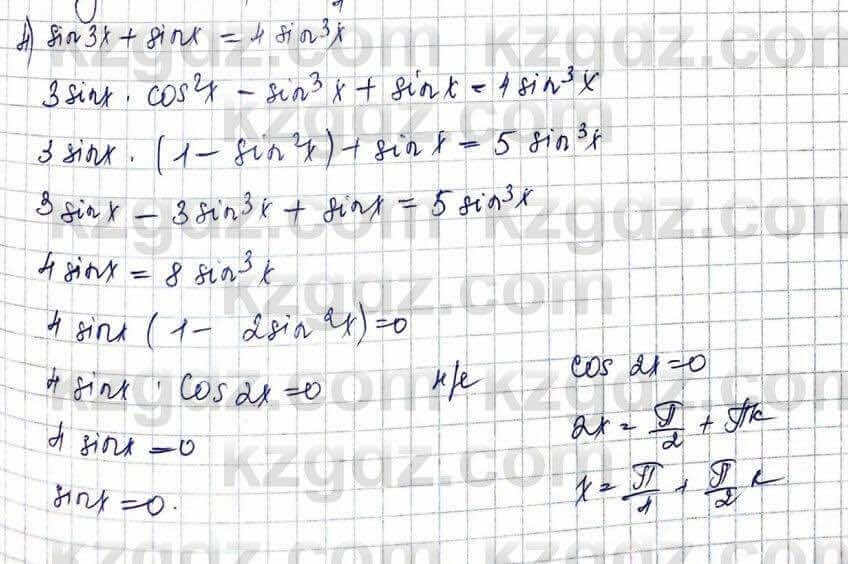 4) sin3x + sinx = 4 sin³x
3 sinx · cos²x - sin³x + sinx = 4 sin³x
3 sinx · (1 - sin²x) + sinx = 5 sin³x
3 sinx - 3 sin³x + sinx = 5 sin³x
4 sinx = 8 sin³x
4 sinx (1 - 2sin²x) = 0
4 sinx · cos2x = 0
4 sinx = 0
sinx = 0.
cos 2x = 0
2x = π/2 + πk
x = π/4 + π/2 k
kzgdz.com